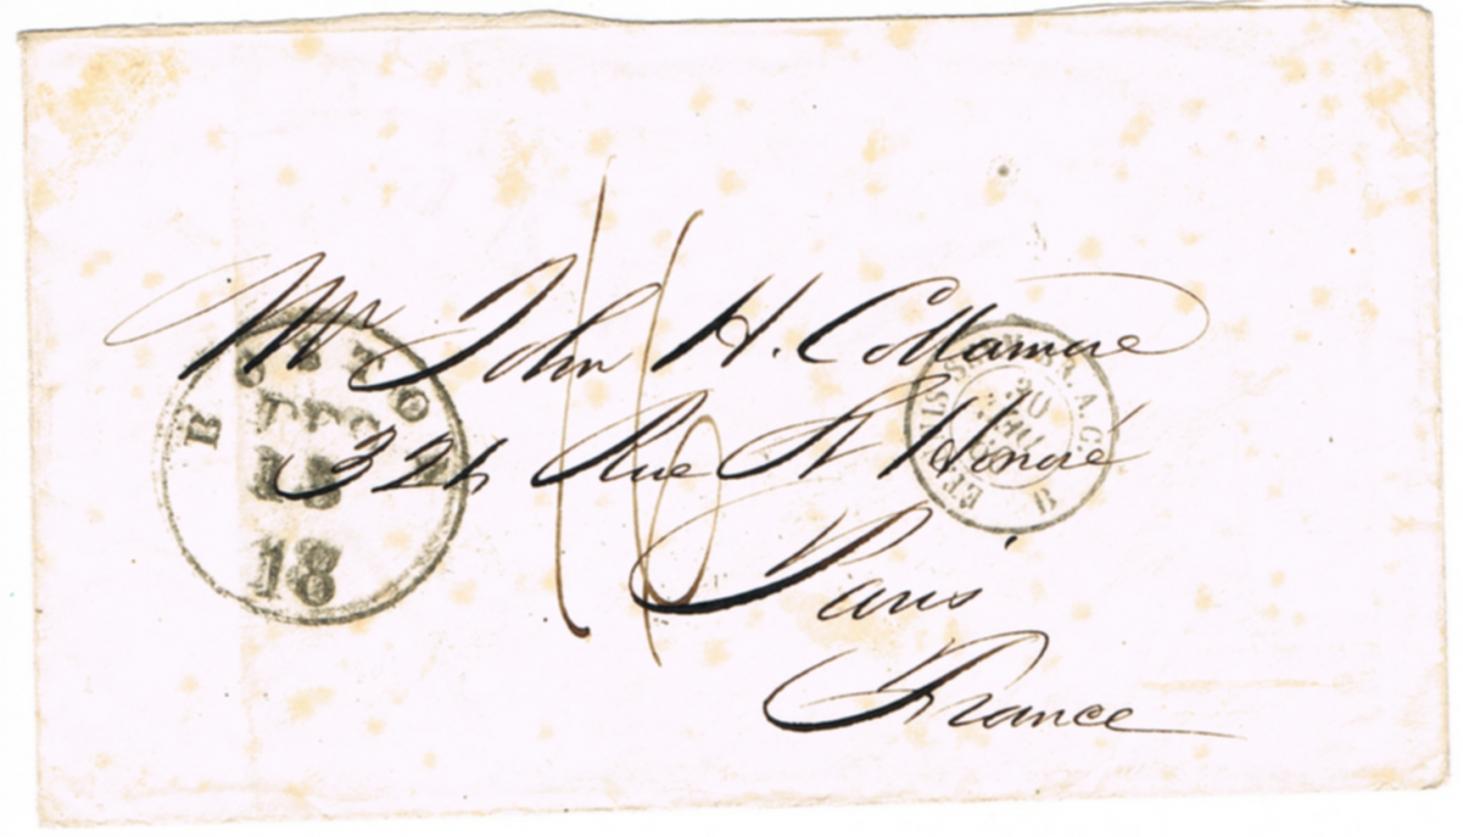 Mr John H. Collamore
324 Rue St Honoré
Paris
France
16
BOSTON
DEC
18
ET. UNIS SERV. A. C.
20